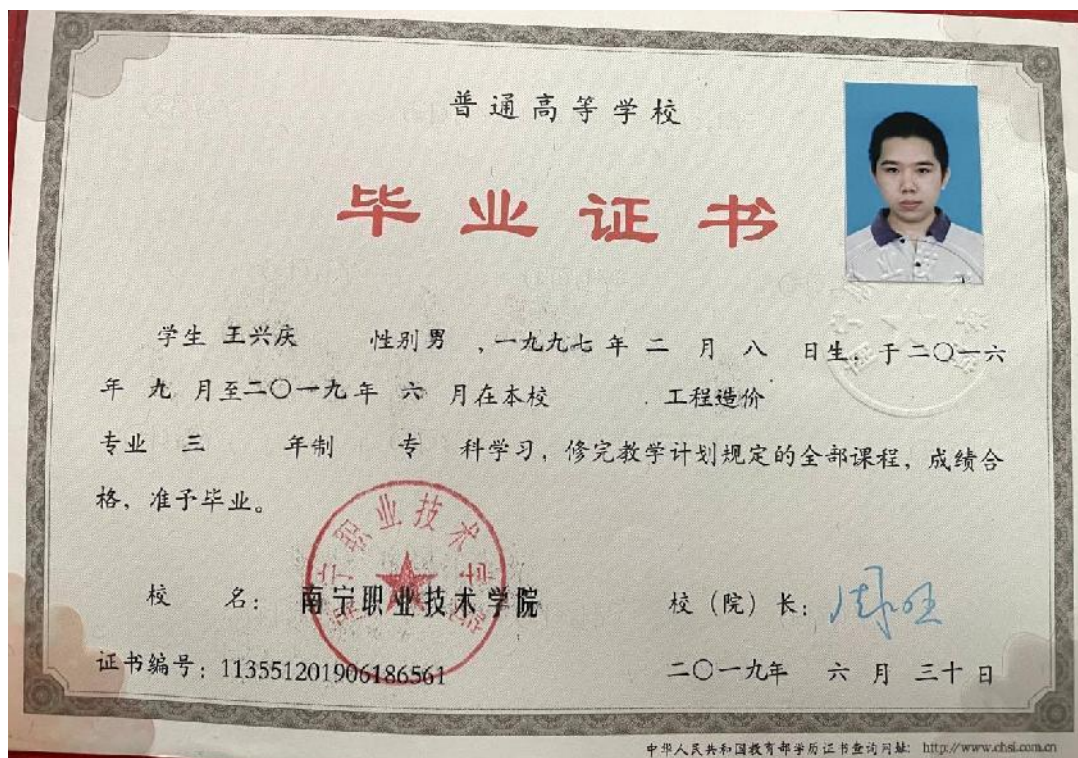 普通高等学校
毕业证书
学生 王兴庆 性别 男 ,一九九七 年 二 月 八 日生,于二〇一六
年 九 月至二〇一九年 六 月在本校 工程造价
专业 三 年制 专 科学习,修完教学计划规定的全部课程,成绩合
格,准予毕业。
南宁职业技术学院
校 名: 南宁职业技术学院 校(院)长: 周旺
证书编号:113551201906186561 二〇一九年 六 月 三十 日
中华人民共和国教育部学历证书查询网址: http://www.chsi.com.cn